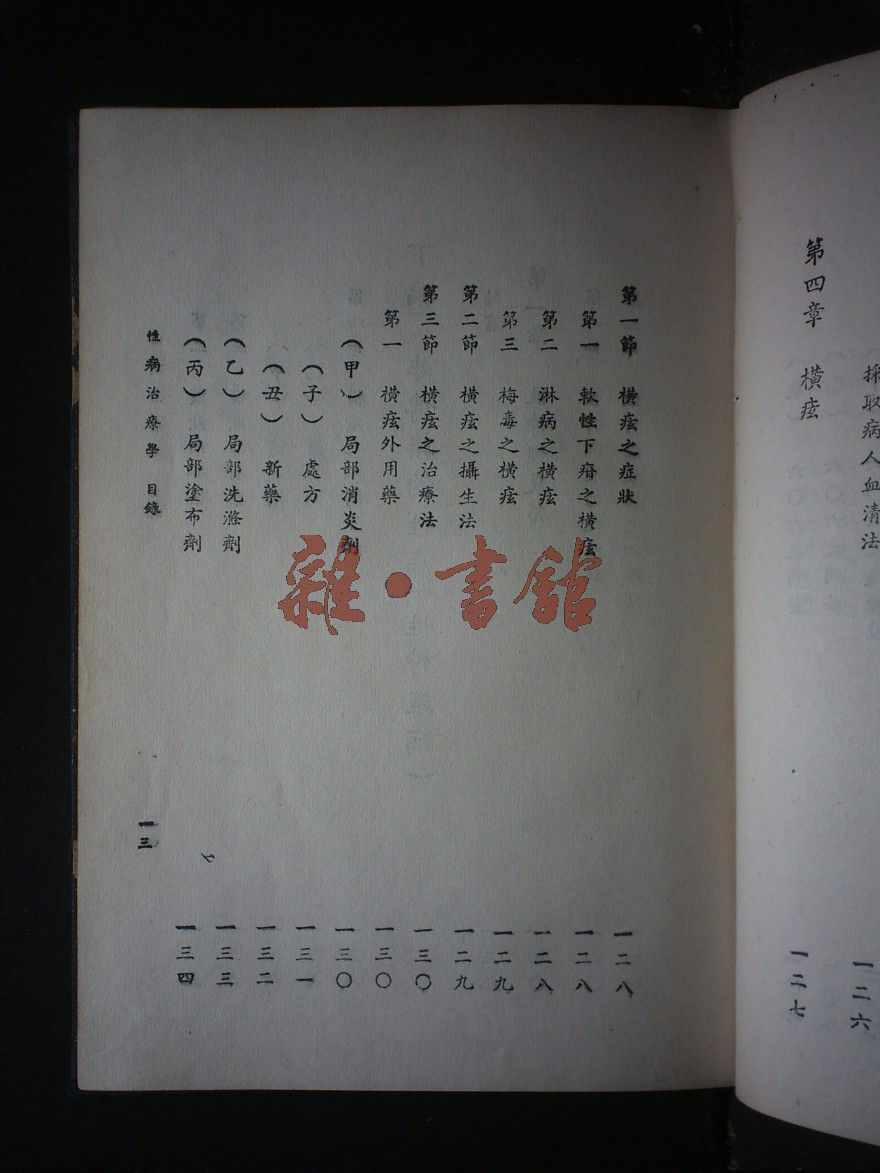 採取病人血清法 一二六
第四章 橫痃 一二七
第一節 橫痃之症狀 一二八
第一 軟性下疳之橫痃 一二八
第二 淋病之橫痃 一二八
第三 梅毒之橫痃 一二九
第二節 橫痃之攝生法 一二九
第三節 橫痃之治療法 一三〇
第一 橫痃外用藥 一三〇
（甲）局部消炎劑 一三〇
（子）處方 一三一
（丑）新藥 一三二
（乙）局部洗滌劑 一三三
（丙）局部塗布劑 一三四
性病治療學 目錄 一三
雜·書館